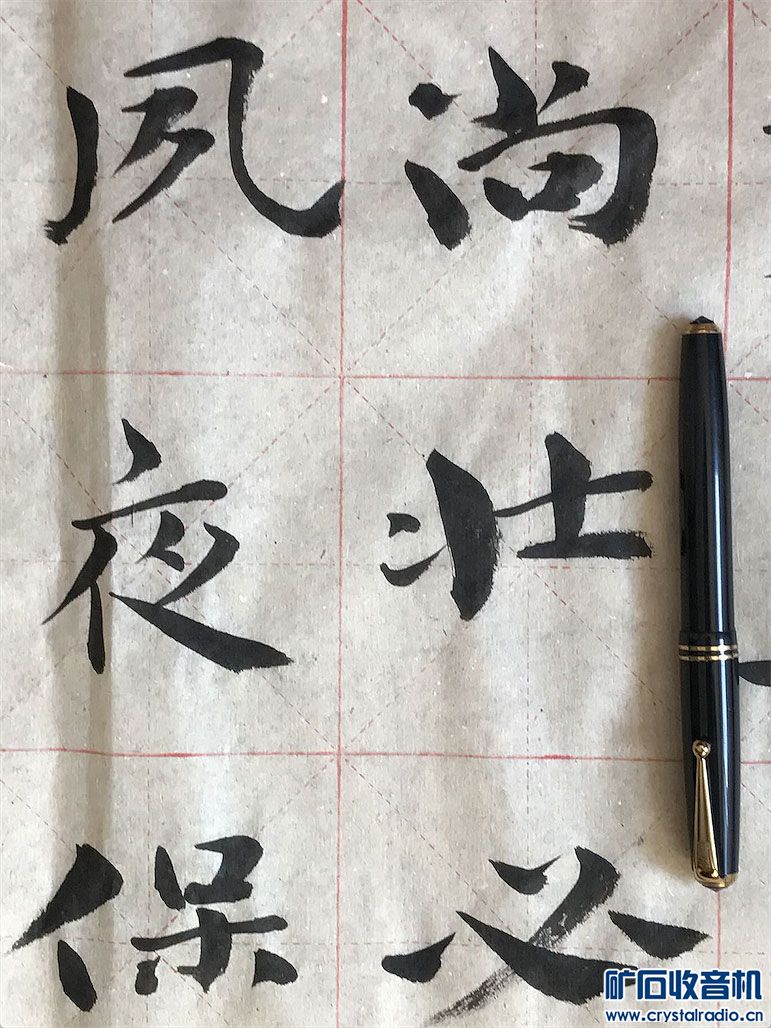 尚壮必
夙夜保
矿石收音机
www.crystalradio.cn